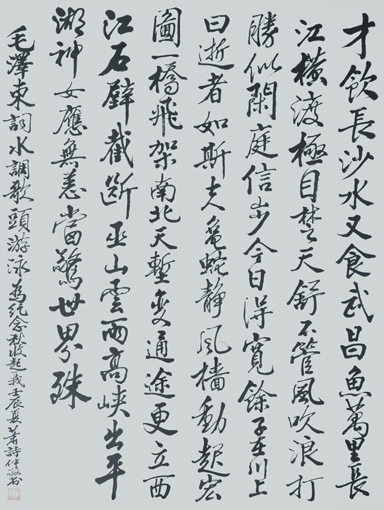 才飲長沙水又食武昌魚萬里長
江橫渡極目楚天舒不管風吹浪打
勝似閑庭信步今日得寬餘子在川上
曰逝者如斯夫龜蛇靜風檣動起宏
圖一橋飛架南北天塹變通途更立西
江石壁截斷巫山雲雨高峽出平
湖神女應無恙當驚世界殊
毛澤東詞水調歌頭游泳為紀念秋收起義壬辰夏